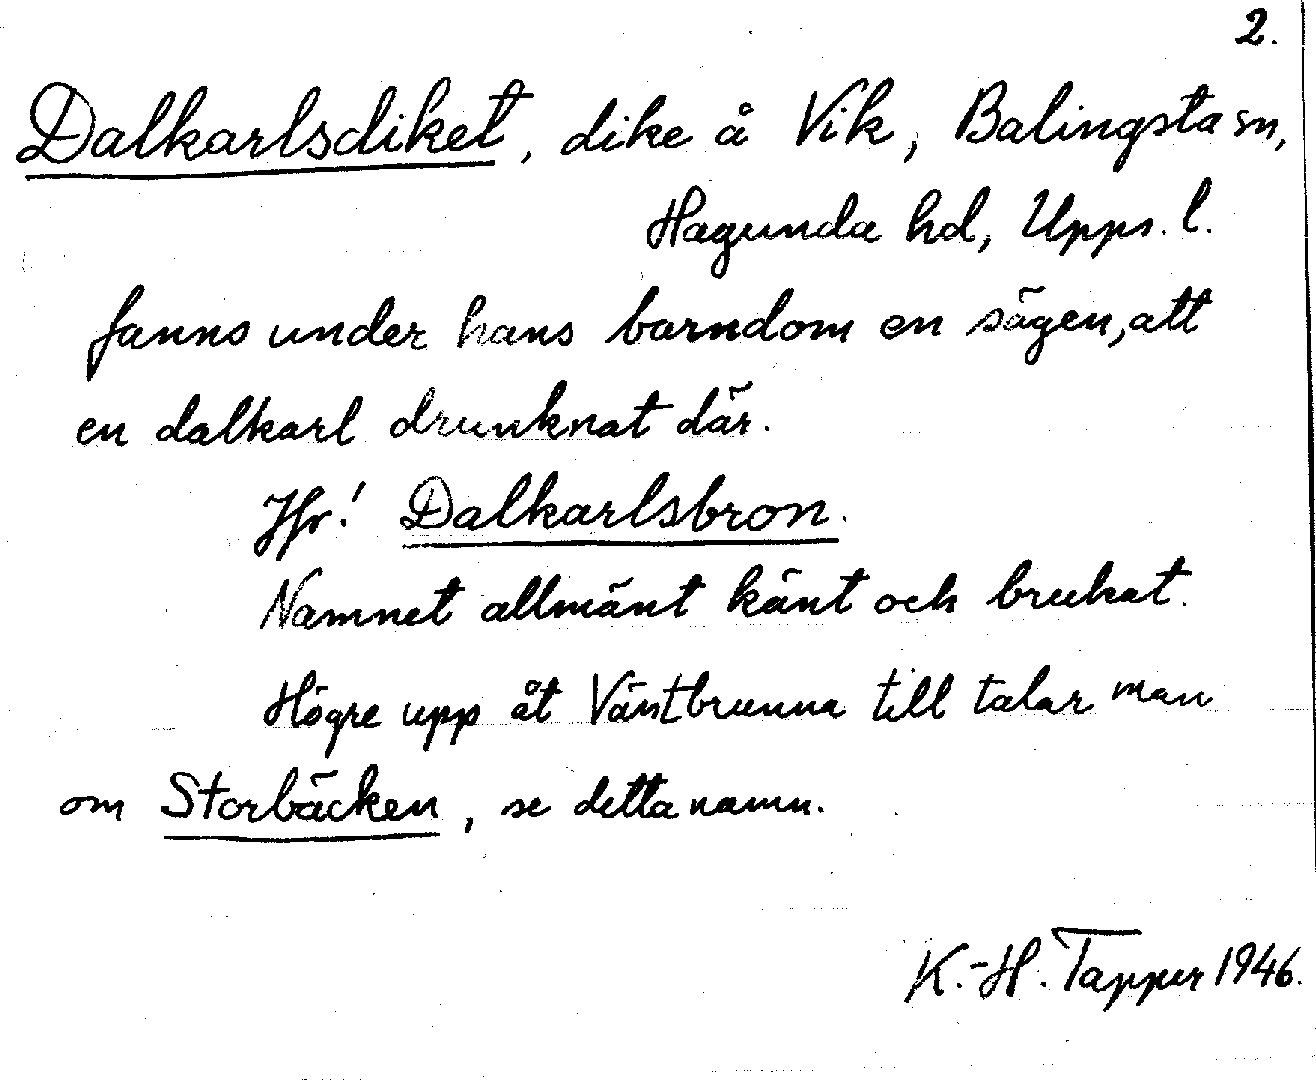 2.
Dalkarlsdiket, dike å Vik, Balingsta sn,
Hagunda hd, Upps. l.
fanns under hans barndom en sägen, att
en dalkarl drunknat där.
Jfr! Dalkarlsbron.
Namnet allmänt känt och brukat.
Högre upp åt Väntbrunna till talar man
om Storbäcken, se detta namn.
K.-H. Tapper 1946.